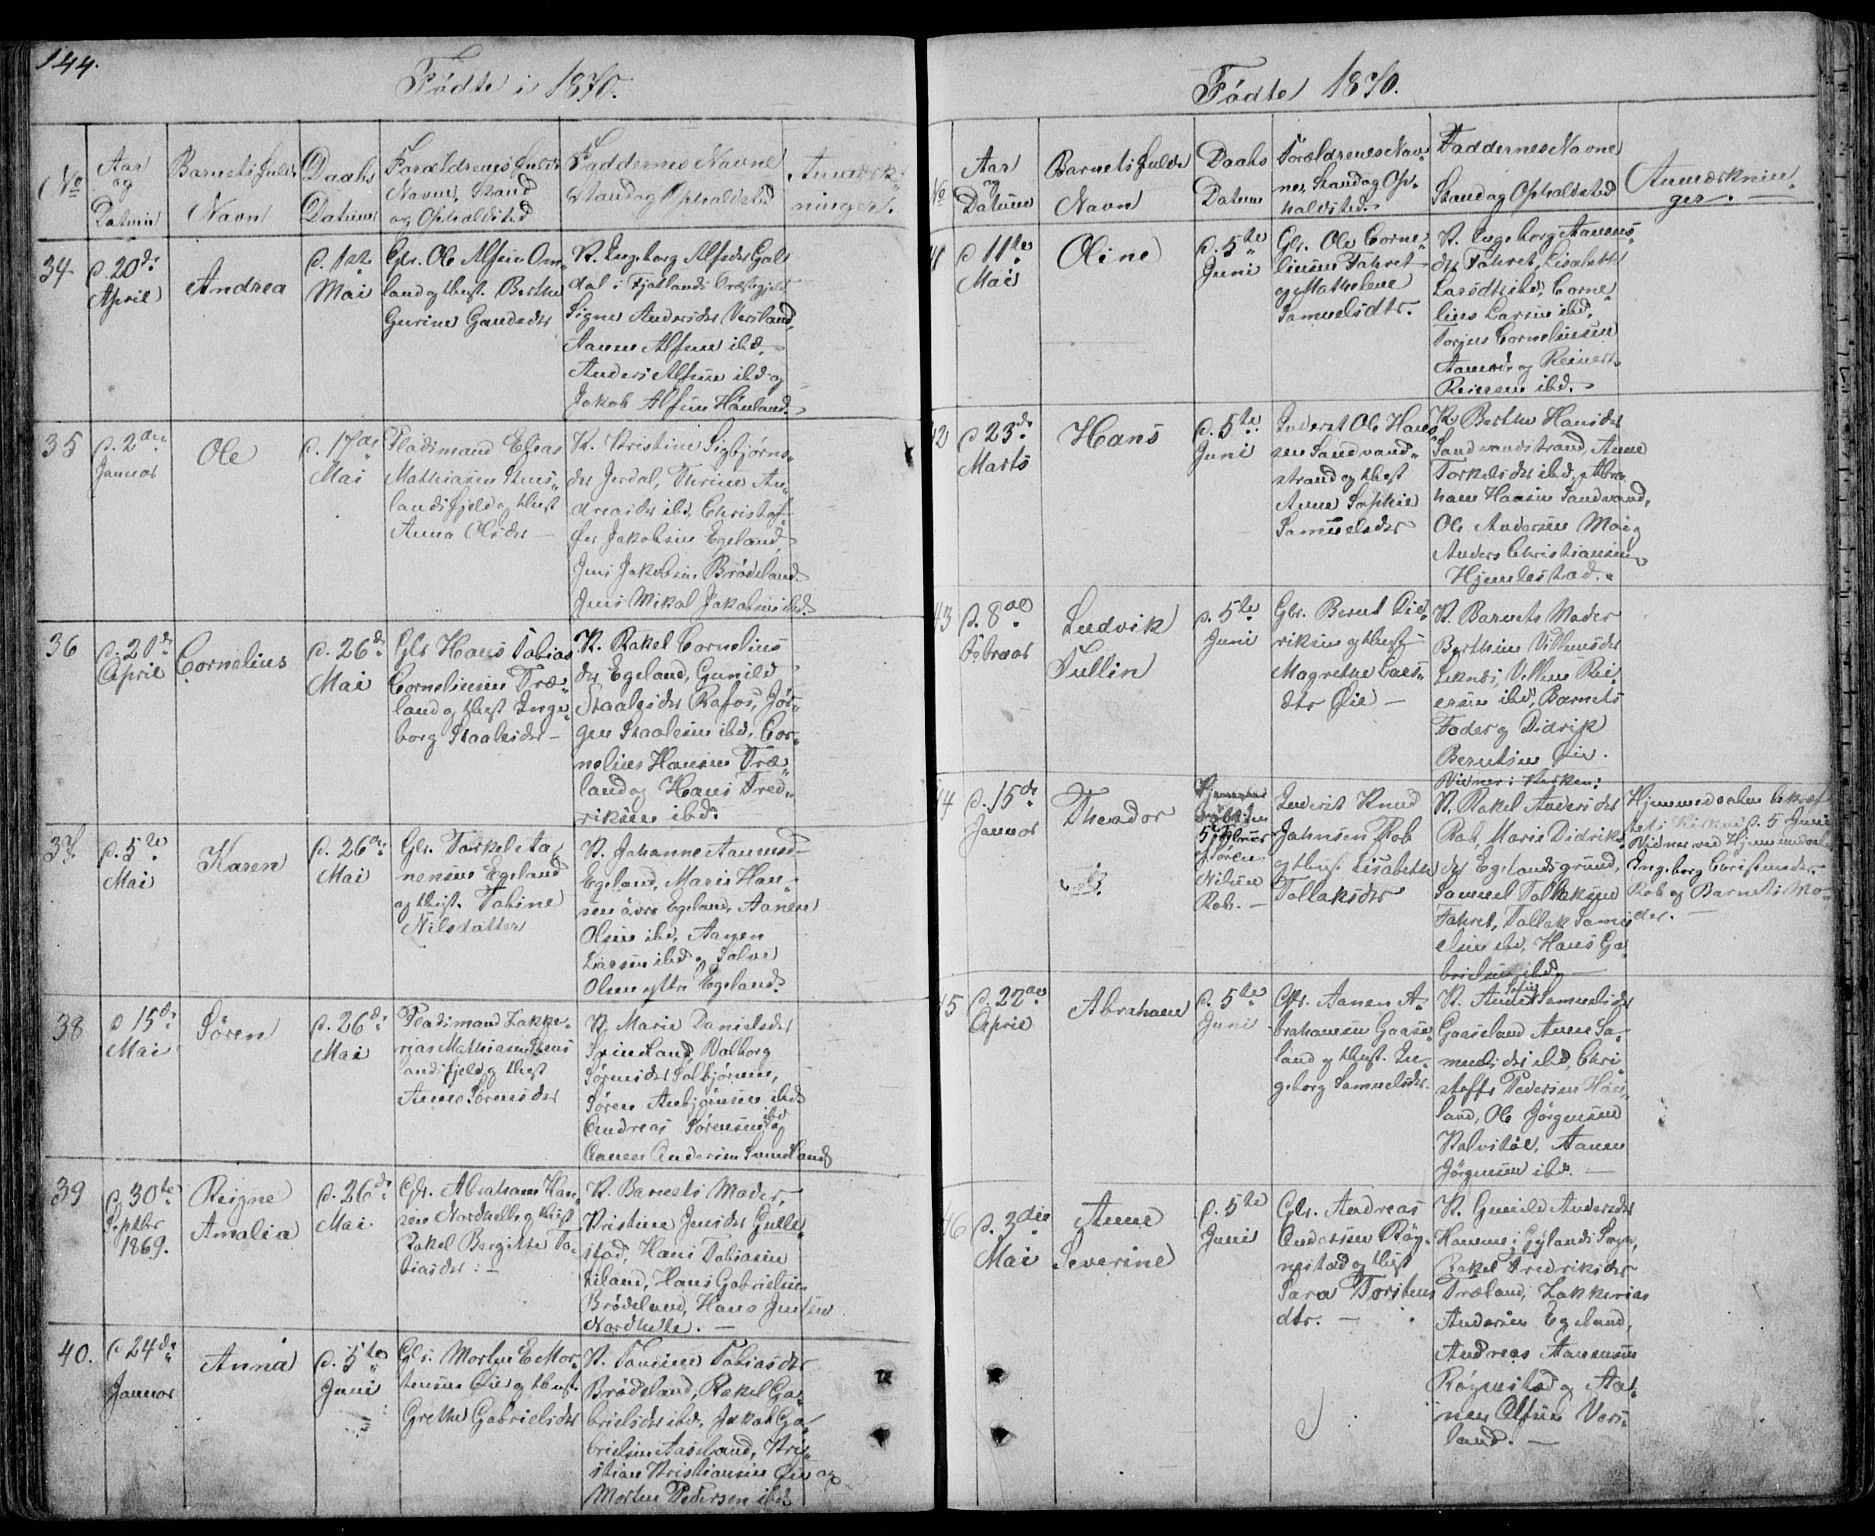 144.
Fødte i 1870.
No
Aar og Datum
Barnets fulde Navn
Daabs Datum
Forældrenes fulde Navne, Stand og Opholdsted
Faddernes Navne Stand og Opholdsted
Anmærkninger.
34
d. 20de April
Andrea
d. 1ste Mai
Gbr. Ole Alfsen Om-
land og Hust. Berthe
Gurine Gundsdtr
K. Ingeborg Alfsdtr Gul-
dal i Fjotlands Præstegjeld
Signe Andersdtr Versland,
Aanen Alfsen ibd,
Anders Alfsen ibd og
Jakob Alfsen Hanland.
35
d. 2den Januar
Ole
d. 17de Mai
Pladsmand Elias
Mathiasen Stens-
landsfjeld og Hust
Anna Olsdtr
K. Kristine Sigbjørns-
dtr Jerdal, Thrine An-
dreasdtr ibd, Christof-
fer Jakobsen Egeland,
Jens Jakobsen Brødeland
Jens Mikal Jakobsen ibd.
36
d. 21de April
Cornelius
d. 26de Mai
Gbr Hans Tobias
Corneliusen Træ-
land og Hust Inge-
borg Staalesdtr
K. Rakel Cornelius
dtr Egeland, Gunild
Staalesdtr Rafos, Jør-
gen Staalesen ibd, Cor-
nelius Hansen Træ-
land og Hans Fred-
riksen ibd.
37
d. 5te Mai
Karen
d. 26de Mai
Gbr. Torkel Aa-
nensen Egeland
og Hust. Tobine
Nilsdatter
K. Johanne Aanensd
Egeland, Marie Han-
sen øvre Egeland, Aanen
Olsen ibd, Aanen
Larsen ibd og Salve
Olsen yttre Egeland.
38
d 15de Mai
Søren
d. 26de Mai
Pladsmand Zakke-
rias Mathiasen Stens
landsfjeld og Hust
Anne Sørensdtr
K. Marie Danielsdtr
Svindland, Valborg
Sørensdtr Solbjørnm,
Søren Anbjørnsen ibd
Andreas Sørensen ibd og
Aanen Andersen Svindland
39
d. 30te Septbr 1869.
Reigne Amalia
d. 26de Mai
Gbr. Abraham Han-
sen Nordhelle og Hust
Rakel Bergitte To-
biasdtr
K. Barnets Moder,
Kristine Jensdtr Gulle-
stad, Hans Tobiasen
Eiland, Hans Gabrielsen
Brødeland, Hans Jensen
Nordhelle.
40.
d 24de Januar
Anna
d. 5te Juni
Gbr. Morten E Mor-
tensen Øie og Hust.
Grethe Gabrielsdtr
K. Tomine Tobiasdtr
Brødeland, Rakel Ga-
brielsdtr ibd, Jakob Ga-
brielsen Aasland, Kri-
stian Kristiansen Øie og
Morten Pedersen ibd
Fødte 1870.
No
Aar og Datum
Barnets fulde Navn
Daabs Datum
Forældrenes Nav-
ne, Stand og Op-
holdsted.
Faddernes Navne
Stand og Opholdsted
Anmærknin-
ger.
41
d 11te Mai
Oline
d. 5te Juni
Gbr. Ole Corne-
liusen Fahret
og Mathelene
Samuelsdtr.
K. Ingeborg Aanens-
dtr Fahret, Lisabeth
Larsdtr ibd, Corne-
lius Larsen ibd,
Torjus Corneliusen
Aamod og Reinert
Reiersen ibd.
42
d 23de Marts
Hans
d. 5te Juni
Inderst Ole Hans-
sen Sandvand-
strand og Hust
Anne Sophie
Samuelsdtr
K Berthe Hansdtr
Sandvandstrand, Anne
Torkelsdtr ibd, Abra-
ham Hansen Sandvand,
Ole Andersen Moi og
Anders Christiansen
Hjemlestad.
43
d. 8de Februar
Ludvik Tullin
d. 5te Juni
Gbr. Bernt Did-
riksen og Hust
Magrethe Lars-
dtr Øie
K. Barnets Moder
Berthine Vilhelmsdtr
Leknes, Vilhem Rei-
ersen ibd, Barnets
Fader og Didrik
Berntsen Øie.
44
d. 15de Januar
Theodor
5te Februar
Søren
Nilsen
Rob.
Inderst Knud
Johnsen Rob
og Hust. Lisabeth
Tollaksdtr
Vidner i Kirken:
K. Rakel Andersdtr
Rob, Marie Didriks
dtr Egelandsgrund,
Samuel Tollaksen
Fahret, Tollak Samu-
elsen ibd, Hans Ga-
brielsen ibd.
Hjemmedaaben bekræf-
tet i Kirken d. 5 Juni
Vidner ved Hjemmedaaben
Ingeborg Christensdtr
Rob og Barnets Mo-
der.
45
d. 22de April
Abraham
d. 5te Juni
Gbr. Aanen A-
brahamsen Gaase-
land og Hust. In-
geborg Samuelsdtr.
K. Anne Sofie Samuelsdtr
Gaaseland, Anne Sa-
muelsdtr ibd, Chri-
stoffer Pedersen Haa-
land, Ole Jørgensen
Kalvstøl, Aanen
Jørgensen ibd.
46
d. 3die Mai
Anne Severine
d. 5te Juni
Gbr. Andreas
Andersen Røy-
nestad og Hust
Sara Torstens
dtr.
K. Gunild Andersdtr
Hamme i Gylands Sogn,
Rakel Fredriksdtr
Træland, Zakkerias
Andersen Egeland,
Andreas Aanensen
Røynestad og Aa-
nen Alfsen Vers-
land.